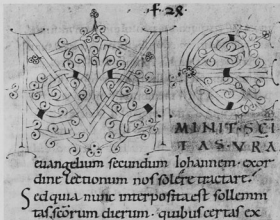 ·f·28·
ME
MINIT·SCI
TAS·VRA
euangelium secundum Iohannem· exor
dine lectionum nos solere tractare.
Sed quia nunc interposita est sollemni
tas scōrum dierum· quibus certas ex